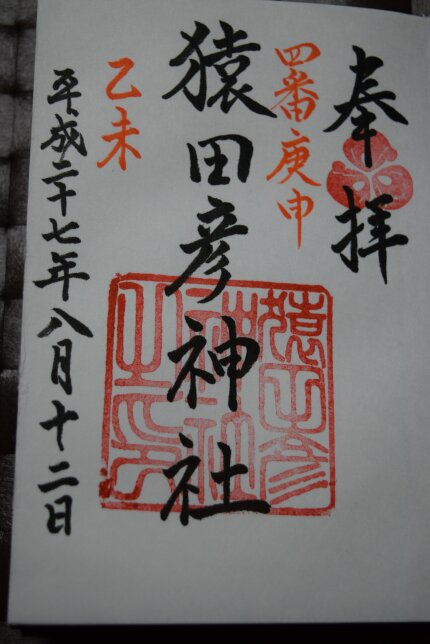 奉拝
四番庚申
猿田彦神社
乙未
平成二十七年八月十二日
猿田彦
神社
之印